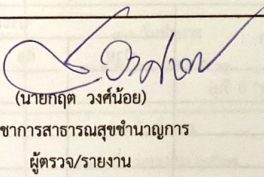 (นายกฤต วงศ์น้อย)
ชาการสาธารณสุขชำนาญการ
ผู้ตรวจ/รายงาน